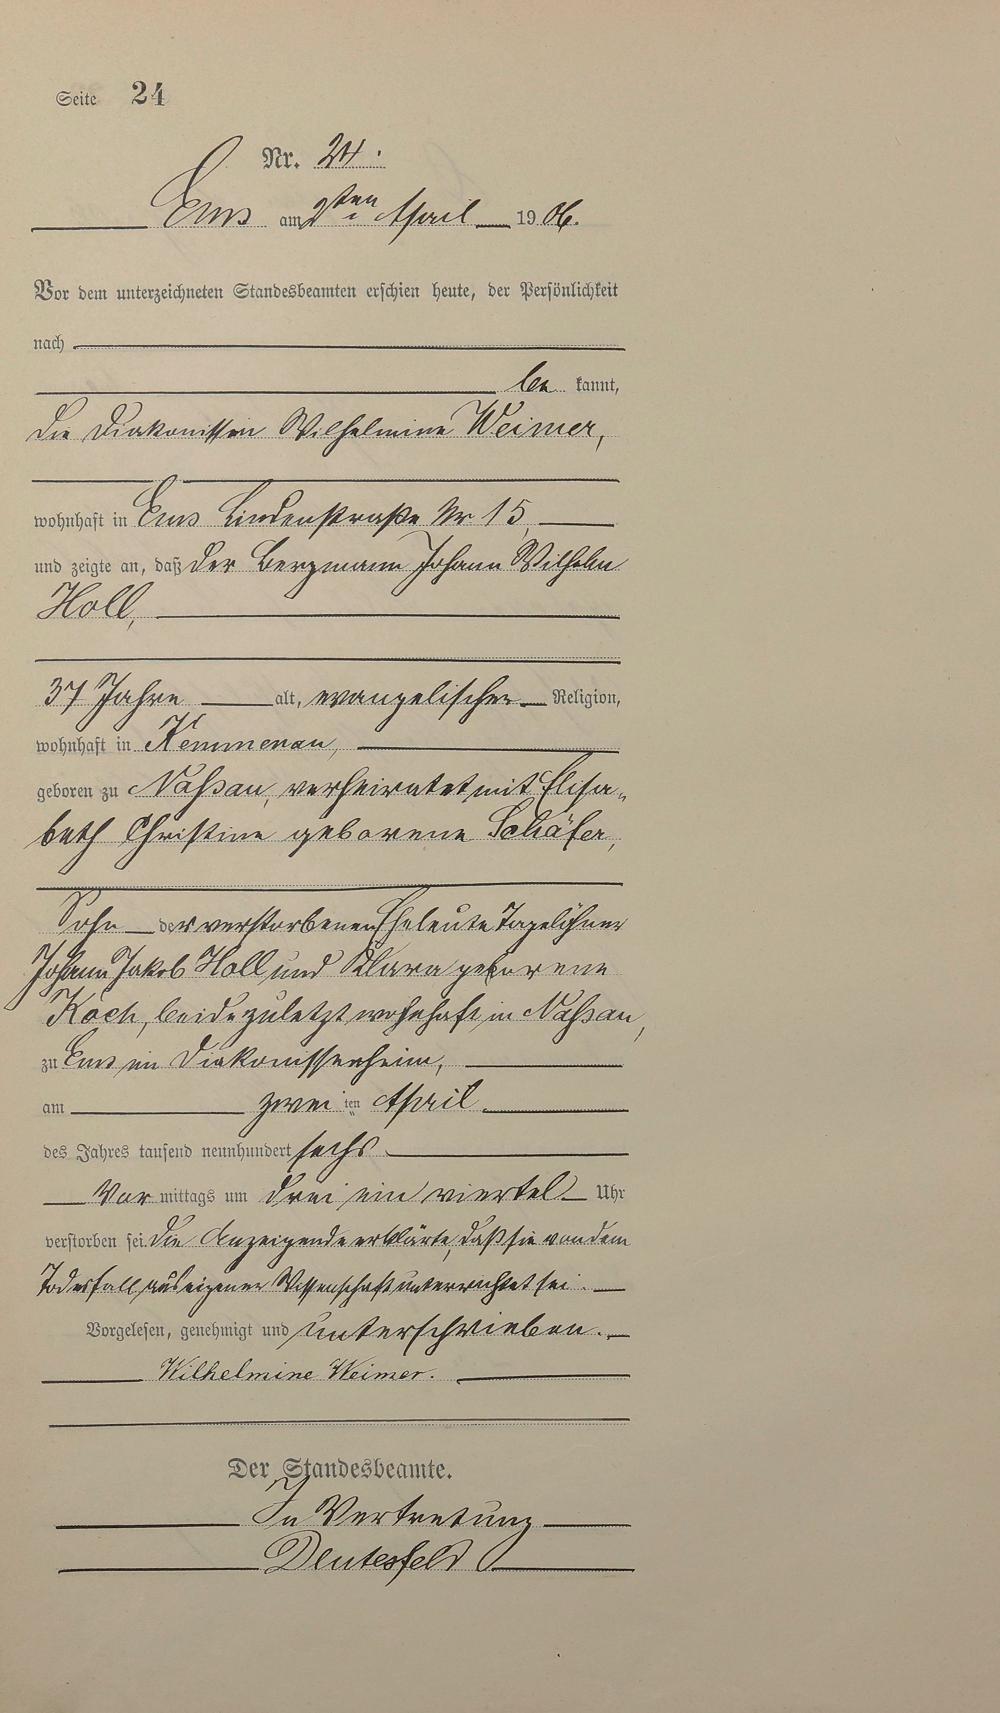 Seite 24
Nr. 24.
Ems am 2ten April 1906.
Vor dem unterzeichneten Standesbeamten erschien heute, der Persönlichkeit
nach
be kannt,
die Diakonissin Wilhelmine Weimer,
wohnhaft in Ems Lindenstraße Nr 15,
und zeigte an, daß der Bergmann Johann Wilhelm
Holl,
37 Jahre alt, evangelischer Religion,
wohnhaft in Kemmenau,
geboren zu Naßau, verheiratet mit Elisa„
beth Christine geborene Schäfer,
Sohn der verstorbenen Eheleute Tagelöhner
Johann Jakob Holl und Klara geborene
Koch, beide zuletzt wohnhaft in Naßau,
zu Ems im Diakonissenheim,
am zwei ten April
des Jahres tausend neunhundert sechs
Vor mittags um drei ein viertel Uhr
verstorben sei. Die Anzeigende erklärte, daß sie von dem
Todesfall aus eigener Wissenschaft unterrichtet sei.
Vorgelesen, genehmigt und unterschrieben.
Wilhelmine Weimer.
Der Standesbeamte.
In Vertretung